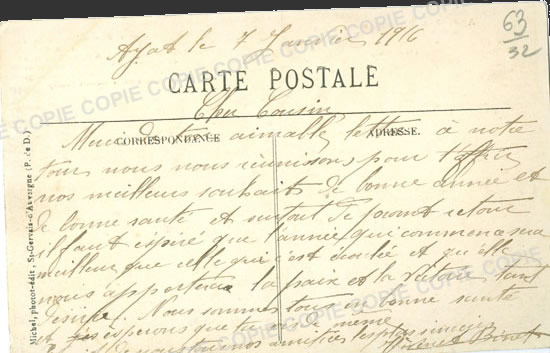 63
32
Ayat le 7 Janvier 1916
CARTE POSTALE
Cher Cousin
CORRESPONDANCE
ADRESSE.
Merci de ton aimable lettre à notre
tour nous nous réunissons pour t'offrir
nos meilleurs souhaits de bonne année et
de bonne santé et surtout de prompt retour
il faut espéré que l'année qui commence sera
meilleur que celle qui s'est écoulée et qu'elle
nous apportera la paix et la victoire tant
désirée. Nous sommes tous en bonne santé
et espérons que toi de même
nos amitiés les plus
Michel, photot-édit., St-Gervais-d'Auvergne (P.-de-D.)
COPIE COPIE COPIE COPIE COPIE COPIE
COPIE COPIE COPIE COPIE COPIE COPIE
COPIE COPIE COPIE COPIE COPIE